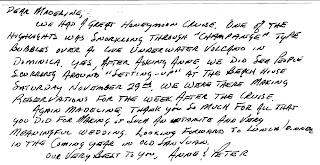 DEAR MADELINE:
WE HAD A GREAT HONEYMOON CRUISE. ONE OF THE
HIGHLIGHTS WAS SNORKLING THROUGH "CHAMPANGE" TYPE
BUBBLES OVER A LIVE UNDERWATER VOLCANO IN
DOMINICA. YES, AFTER ASKING ANNE WE DID SEE PEOPLE
SCURRYING AROUND "SETTING-UP" AT THE BEACH HOUSE
SATURDAY NOVEMBER 29TH. WE WERE THERE MAKING
RESERVATIONS FOR THE WEEK AFTER THE CRUISE.
AGAIN MADELINE, THANK YOU SO MUCH FOR ALL THAT
YOU DID FOR MAKING IT SUCH AN INTIMATE AND VERY
MEANINGFUL WEDDING. LOOKING FORWARD TO LUNCH
IN THE COMING YEAR IN OLD SAN JUAN.
OUR VERY BEST TO YOU, ANNE & PETER